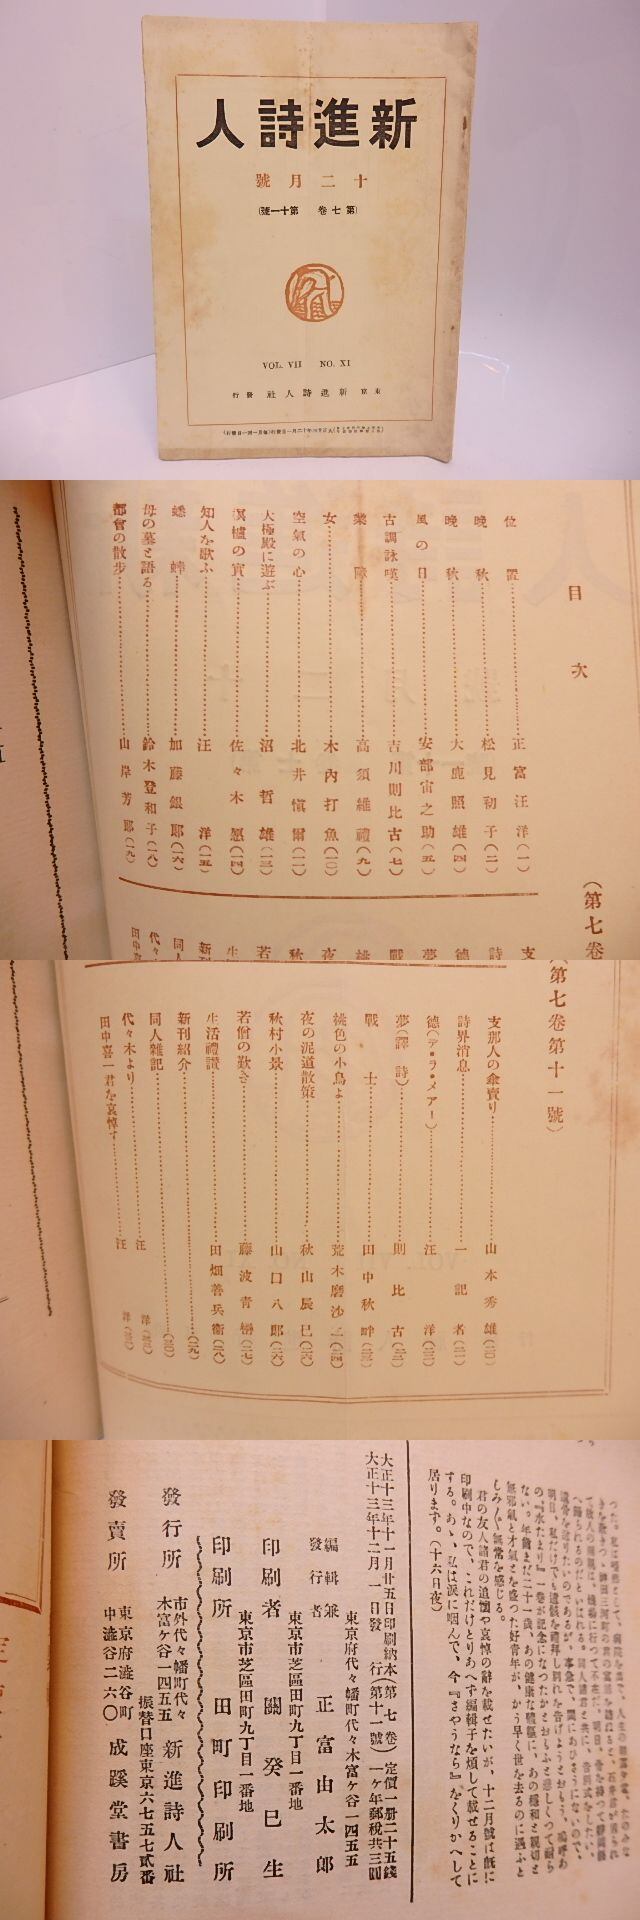 新進詩人
十二月號
(第七卷 第十一號)
VOL. VII NO. XI
東京 新進詩人社 發行
目次
(第七卷
位置 正富汪洋(一)
晩秋 松見初子(二)
晩秋 大鹿照雄(四)
風の日 安部宙之助(五)
古調詠嘆 吉川則比古(七)
業障 高須維禮(九)
女 木内打魚(一〇)
空氣の心 北井愼爾(一一)
大極殿に遊ぶ 沼哲雄(一三)
佐々木愿(一四)
知人を歌ふ 汪洋(一五)
蟋蟀 加藤銀郎(一六)
母の墓と語る 鈴木登和子(一八)
都會の散步 山岸芳郎(一九)
(第七卷第十一號)
支那人の傘賣り 山本秀雄(二〇)
詩界消息 一記者(二一)
德(デ・ラ・メアー) 汪洋(二二)
夢(譯詩) 則比古(二三)
戰士 田中秋畔(二三)
桃色の小鳥よ 荒木磨沙二(二四)
夜の泥道散策 秋山辰巳(二六)
秋村小景 山口八郎(二六)
若僧の歎き 藤波青巒(二七)
生活禮讃 田畑善兵衞(二八)
新刊紹介 (二九)
同人雜記 (三〇)
代々木より 汪洋(三三)
田中喜一君を哀悼す 汪洋(三三)
の『水たまり』一卷が記念になつたかとおもふと悲しくつて耐ら
ない。年齒まだ二十一歲、あの健康な體軀に、あの穩和と親切と
無邪氣と才氣とを盛つた好青年が、かう早く世を去るのに遇ふと
しみじみ無常を感じる。
君の友人諸君の追懷や哀悼の辭を載せたいが、十二月號は既に
印刷中なので、これだけとりあへず編輯子を煩して載せることに
する。あゝ、私は淚に咽んで、今『さやうなら』をくりかへして
居ります。(十六日夜)
大正十三年十一月廿五日印刷納本(第七卷)定價一册二十五錢
大正十三年十二月一日發行(第十一號)一ケ年郵稅共三圓
東京府代々幡町代々木富ケ谷一四五五
編輯兼發行者 正富由太郎
東京市芝區田町九丁目一番地
印刷者 關癸巳生
東京市芝區田町九丁目一番地
印刷所 田町印刷所
發行所 市外代々幡町代々木富ケ谷一四五五 新進詩人社
振替口座東京六七五七貳番
發賣所 東京府澁谷町中澁谷二六〇 成蹊堂書房